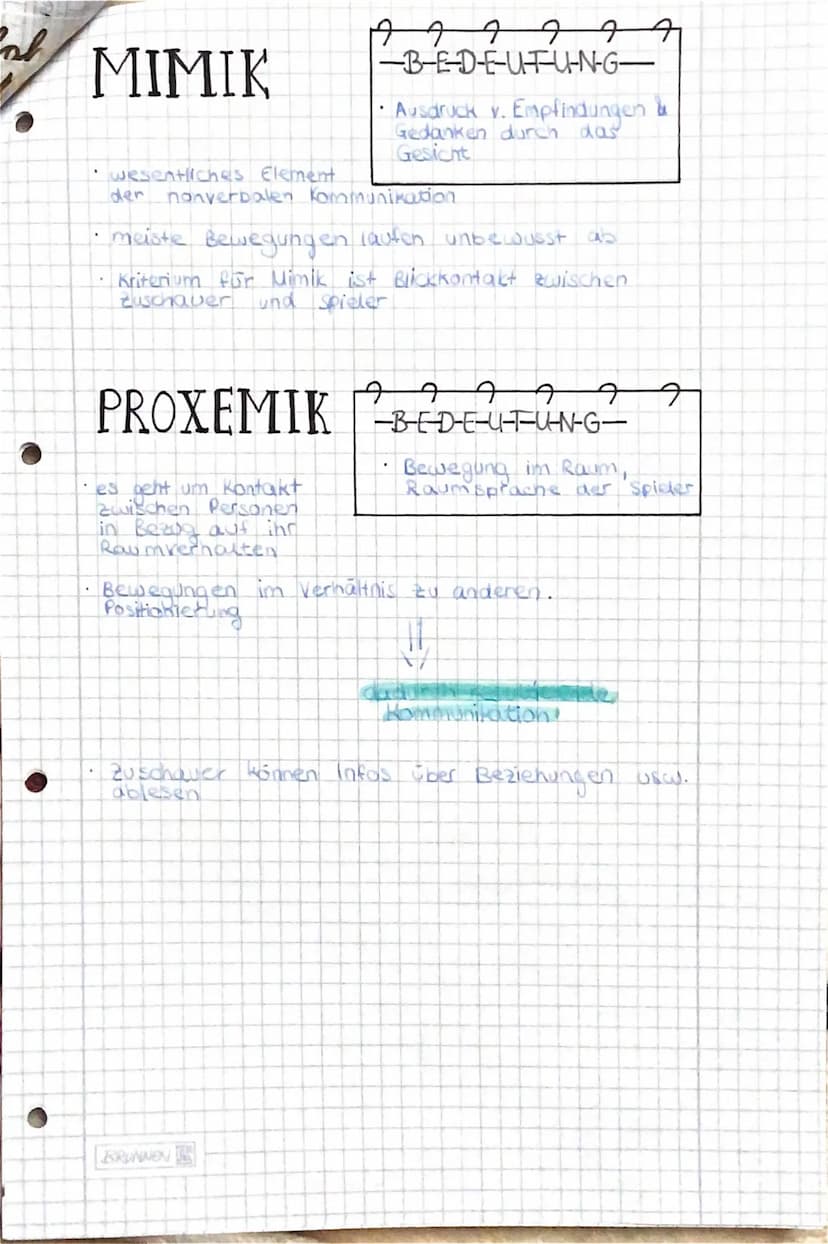 MIMIK
-B-E-D-E-U-T-U-N-G-
· Ausdruck v. Empfindungen &
Gedanken durch das
Gesicht
· wesentliches Element
der nonverbalen Kommunikation
· meiste Bewegungen laufen unbewusst ab
· Kriterium für Mimik ist Blickkontakt zwischen
Zuschauer und Spieler
PROXEMIK
-B-E-D-E-U-T-U-N-G-
· Bewegung im Raum,
Raumsprache der Spieler
· es geht um Kontakt
zwischen Personen
in Bezug auf ihr
Raumverhalten
· Bewegungen im Verhältnis zu anderen.
Positionierung
⇓
dadurch
Kommunikation
· Zuschauer können Infos über Beziehungen usw.
ablesen
BRUNNEN